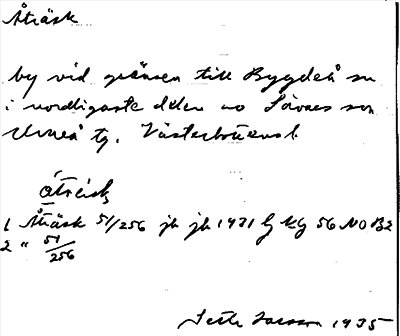 Åträsk
by vid gränsen till Bygdeå sn
i nordligaste delen av Sävars sn
Umeå tg. Västerbottens l.
åträsk
1 Åträsk 51/256 jb jb 1931 G KG 56 NO B2
2 " 51/256
Seth Larsson 1935